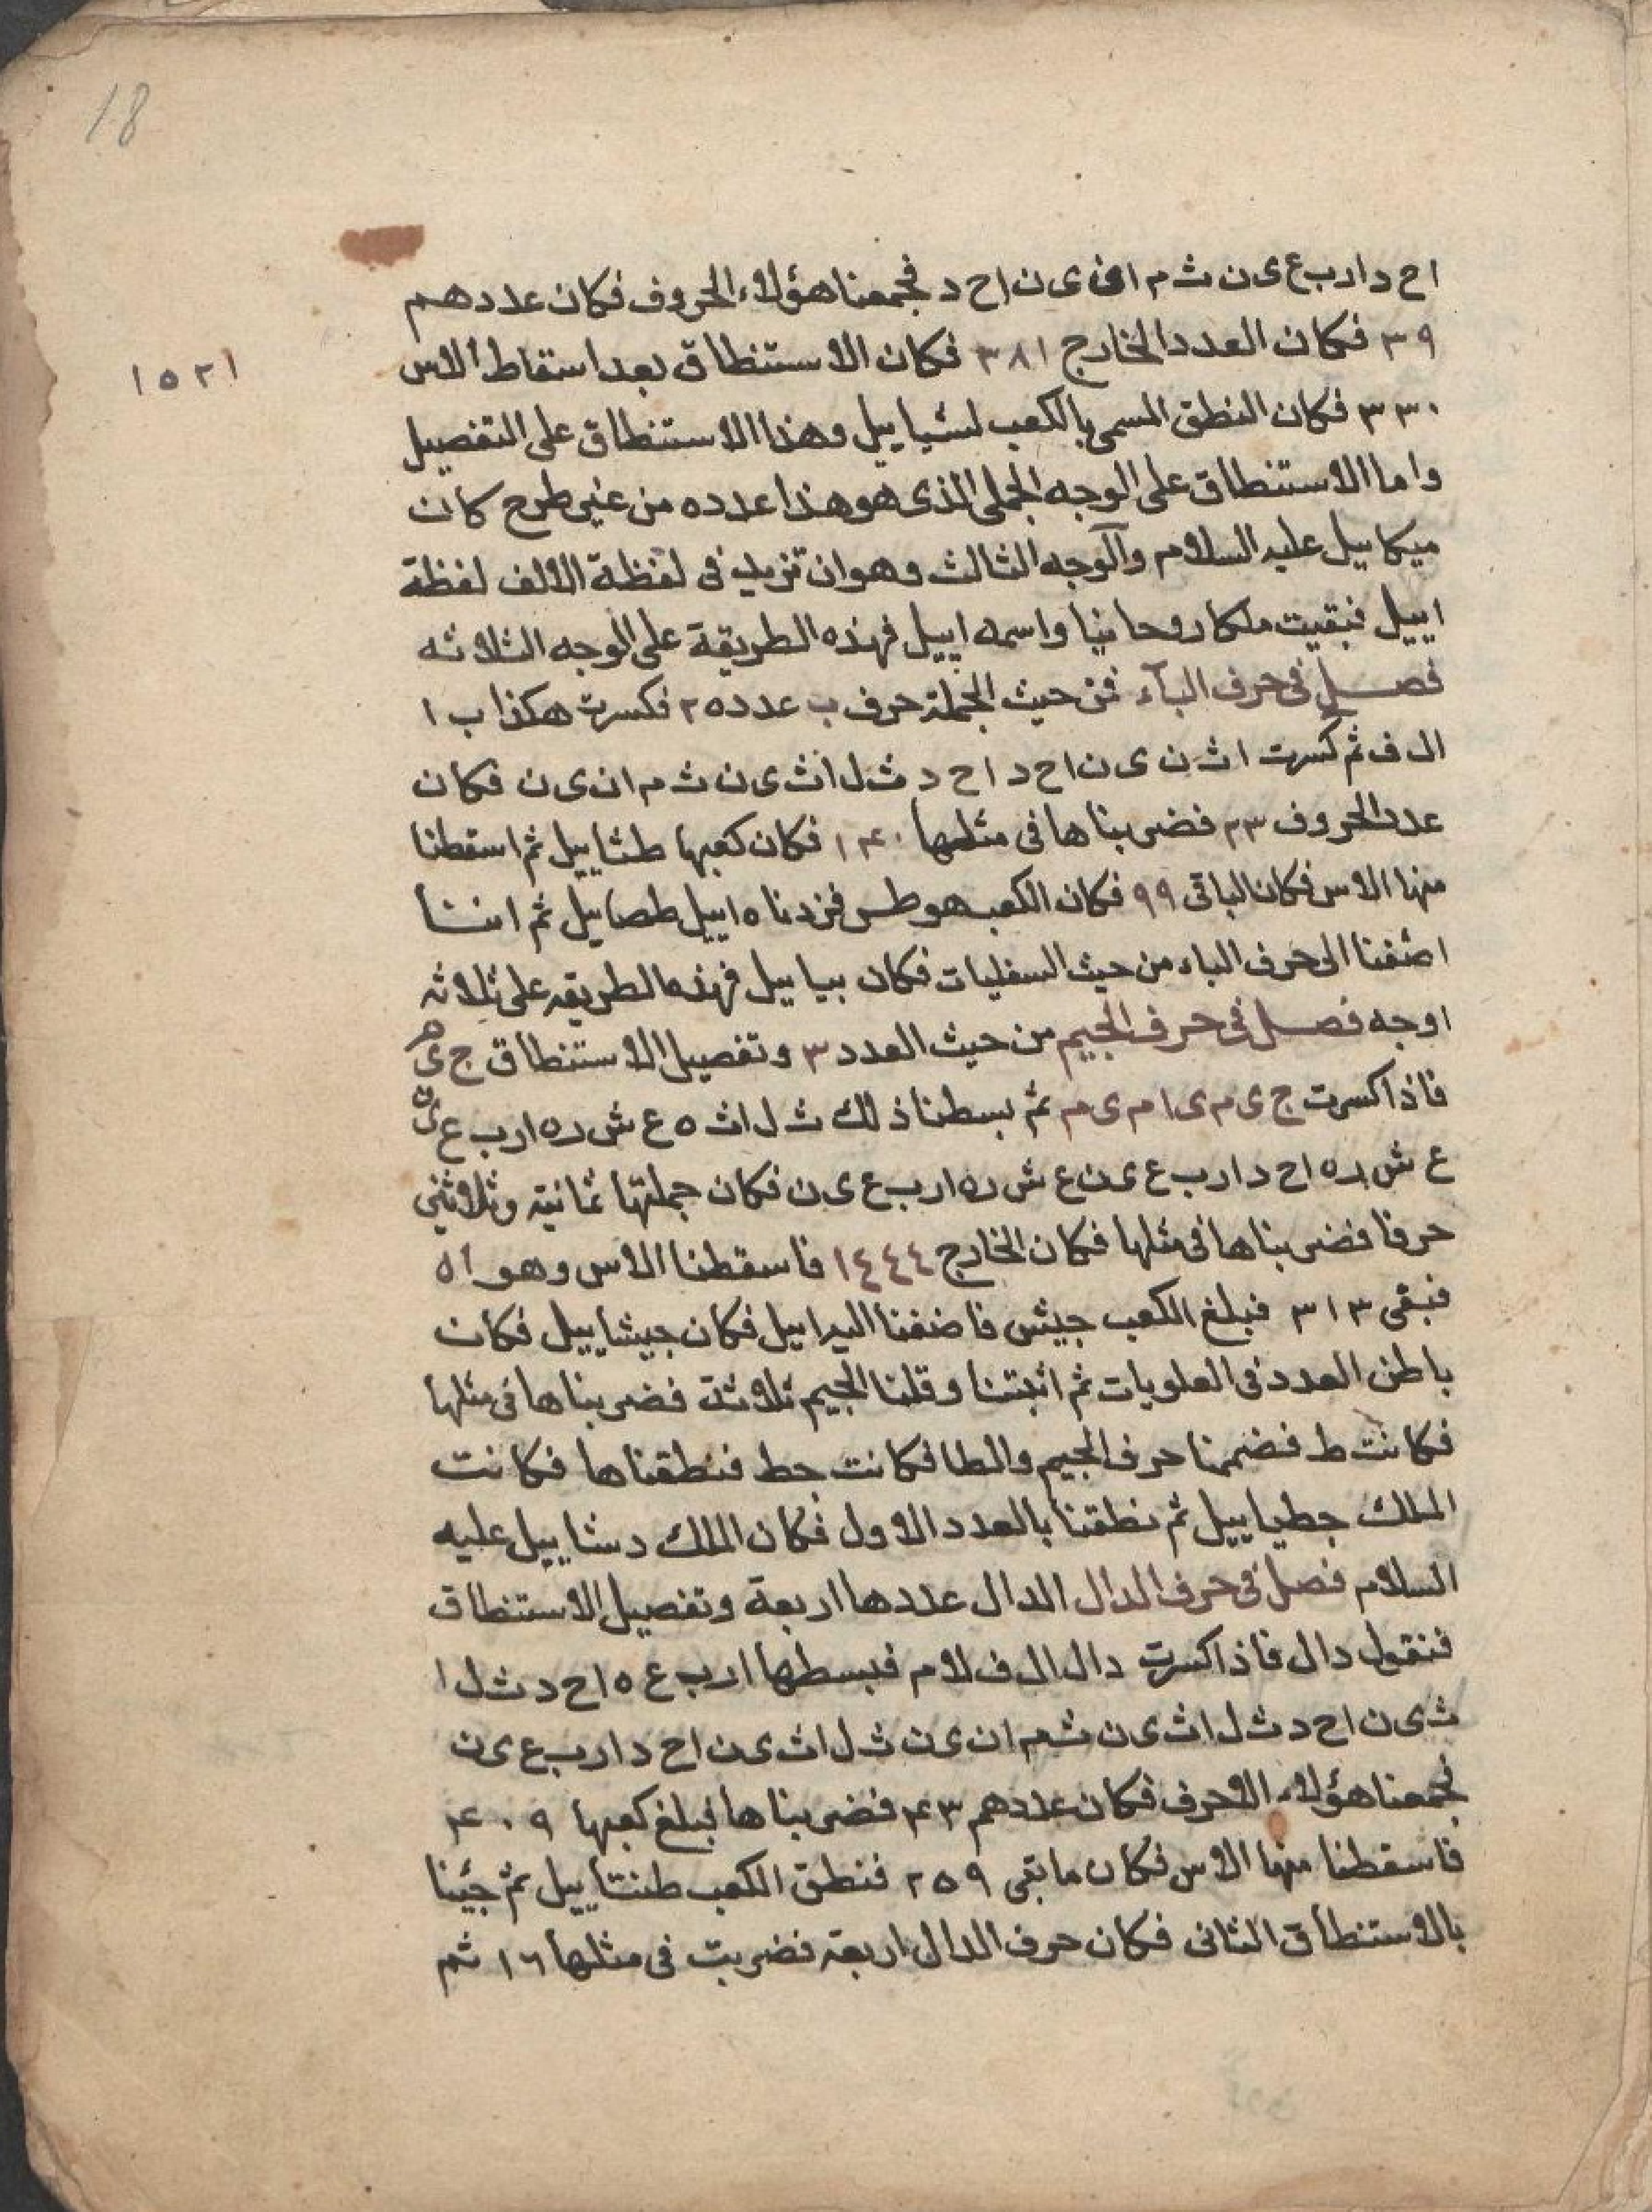 18
ا ح د ا ر ب ع ى ن ث م ا ن ى ن ا ح د فجمعنا هؤلاء الحروف فكان عددهم
٣٩ فكان العدد الخارج ٣٨١ فكان الاستنطاق بعد اسقاط الاس
١٥٢١
٣٣٠ فكان النطق المسمى بالكعب لشياييل وهذا الاستنطاق على التفصيل
واما الاستنطاق على الوجه الجملى الذى هو هذا عدده من غير طرح كان
ميكاييل عليه السلام والوجه الثالث وهو ان تزيد فى لفظة الالف لفظة
اييل فبقيت ملكا روحانيا واسمه اييل فهذه الطريقة على الوجه الثلاثه
فصل فى حرف البآء فمن حيث الجملة حرف ب عدده ٢ فكسرت هكذا ب ا
ال ف ثم كسرت ا ث ن ى ن ا ح د ا ح د ث ل ا ث ى ن ث م ا ن ى ن فكان
عدد الحروف ٢٣ فضربناها فى مثلها ١٤٠ فكان كعبها طثاييل ثم اسقطنا
منها الاس فكان الباقى ٩٩ فكان الكعب هو طس فزدناه اييل طصاييل ثم انشأ
اضفنا الى حرف الباء من حيث السفليات فكان بياييل فهذه الطريقه على ثلاثه
اوجه فصل فى حرف الجيم من حيث العدد ٣ وتفصيل الاستنطاق ج ى م
فاذا كسرت ج ى م ى ا م ى م ثم بسطنا ذلك ث ل ا ث ه ع ش ر ه ا ر ب ع ى ن
ع ش ر ه ا ح د ا ر ب ع ى ن ع ش ر ه ا ر ب ع ى ن فكان جملتها ثمانية وثلاثين
حرفا فضربناها فى مثلها فكان الخارج ١٤٤٤ فاسقطنا الاس وهو ٥١
فبقى ٣١٣ فبلغ الكعب جيش فاضفنا اليه اييل فكان جيشاييل فكان
باطن العدد فى العلويات ثم اثبتنا وقلنا الجيم ثلاثة فضربناها فى مثلها
فكانت ط فضممنا حرف الجيم والطا فكانت جط فنطقناها فكانت
الملك جطياييل ثم نطقنا بالعدد الاول فكان الملك دشاييل عليه
السلام فصل فى حرف الدال الدال عددها اربعة وتفصيل الاستنطاق
فنقول دال فاذا كسرت دال ال ف لام فبسطها ا ر ب ع ه ا ح د ث ل ا
ث ى ن ا ح د ث ل ا ث ى ن ث م ا ن ى ن ث ل ا ث ى ن ا ح د ا ر ب ع ى ن
فجمعنا هؤلاء الاحرف فكان عددهم ٤٣ فضربناها فبلغ كعبها ٤٠٩
فاسقطنا منها الاس فكان ما بقى ٢٥٩ فنطق الكعب طنتاييل ثم جيئنا
بالاستنطاق الثانى فكان حرف الدال اربعة فضربت فى مثلها ١٦ ثم